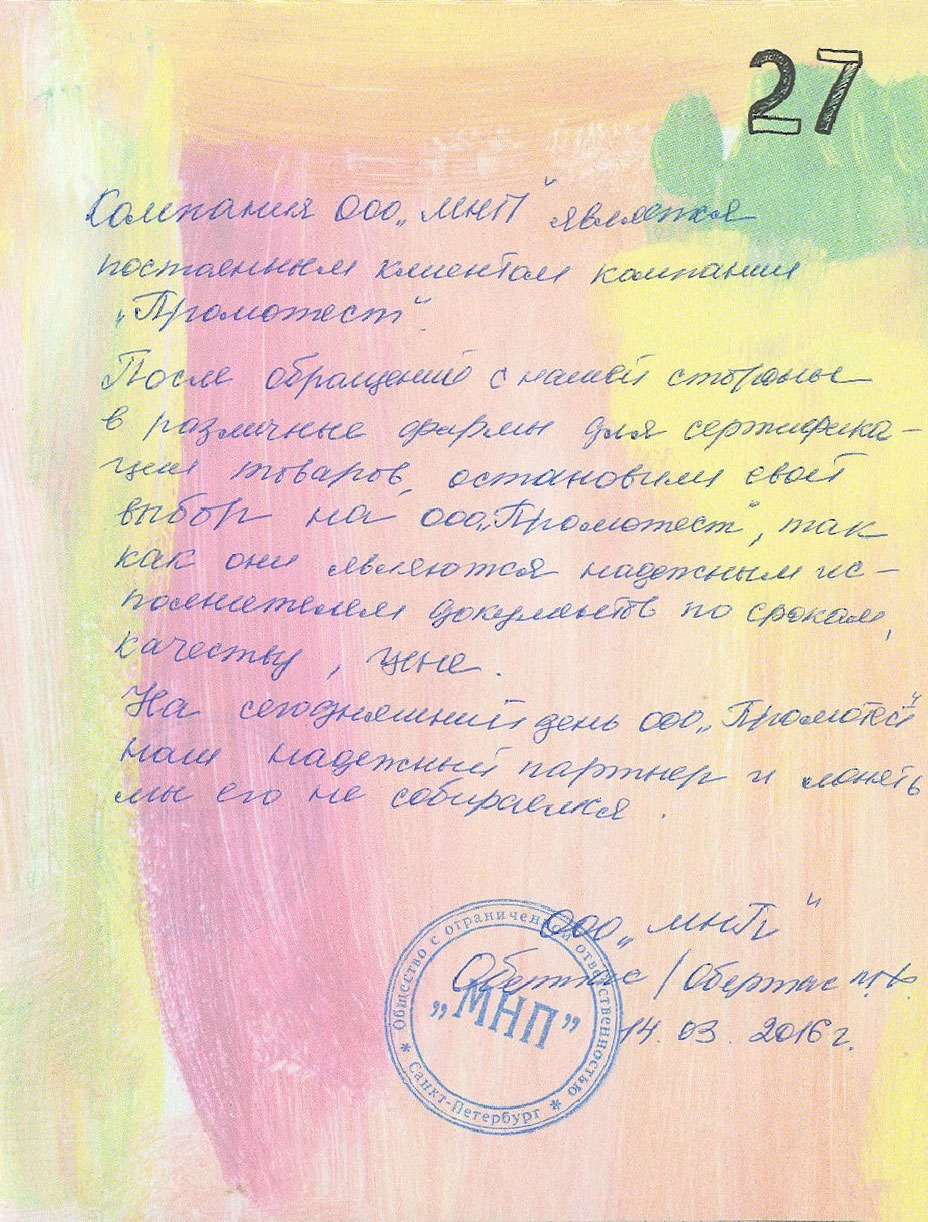 27
Компания ООО „МНП“ является
постоянным клиентом компании
„Промотест“.
После обращений с нашей стороны
в различные фирмы для сертифика-
ции товаров, остановили свой
выбор на ООО „Промотест“, так
как они являются надежным ис-
полнителем документов по срокам,
качеству, цене.
На сегодняшний день ООО
наш надежный партнер и менять
мы его не собираемся.
ООО „МНП“
Обертас / Обертас
14.03.2016 г.
Общество с ограниченной ответственностью
„МНП”
* Санкт-Петербург *